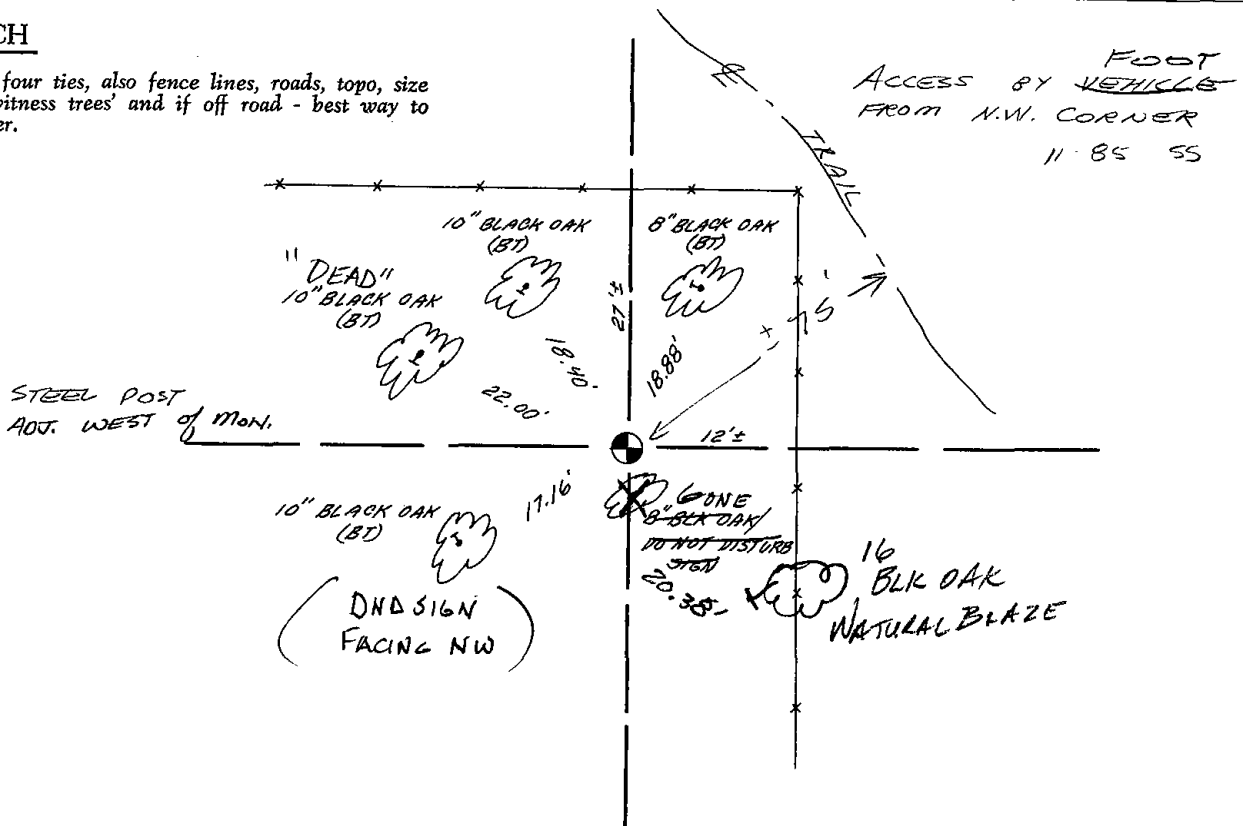 CH
four ties, also fence lines, roads, topo, size
witness trees' and if off road - best way to
er.
FOOT
ACCESS BY VEHICLE
FROM N.W. CORNER
11-85 SS
℄
TRAIL
10" BLACK OAK
(BT)
8" BLACK OAK
(BT)
"DEAD"
10" BLACK OAK
(BT)
27'±
± 75'
18.40'
18.88'
22.00'
STEEL POST
ADJ. WEST of MON.
12'±
10" BLACK OAK
(BT)
17.16'
GONE
8" BLK OAK/
DO NOT DISTURB
SIGN
20.38'
16
BLK OAK
NATURAL BLAZE
(DND SIGN
FACING NW)